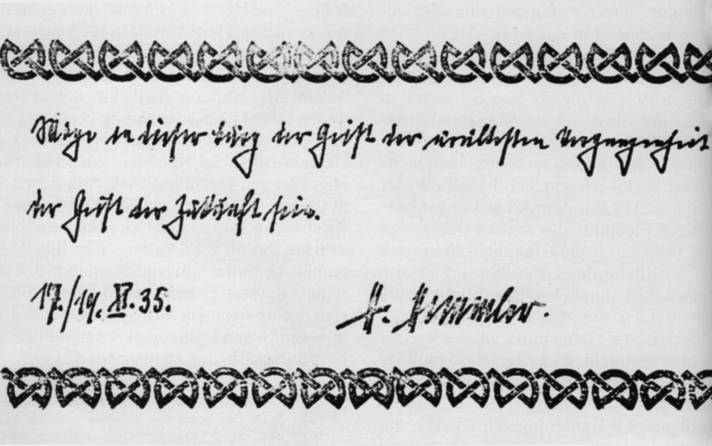 Möge in dieser Burg der Geist der urältesten Vergangenheit
der Geist der Zukunft sein.
17./19. XI. 35. H. Himmler.